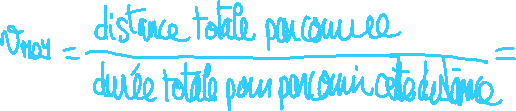 v_moy = distance totale parcourue / durée totale pour parcourir cette distance =